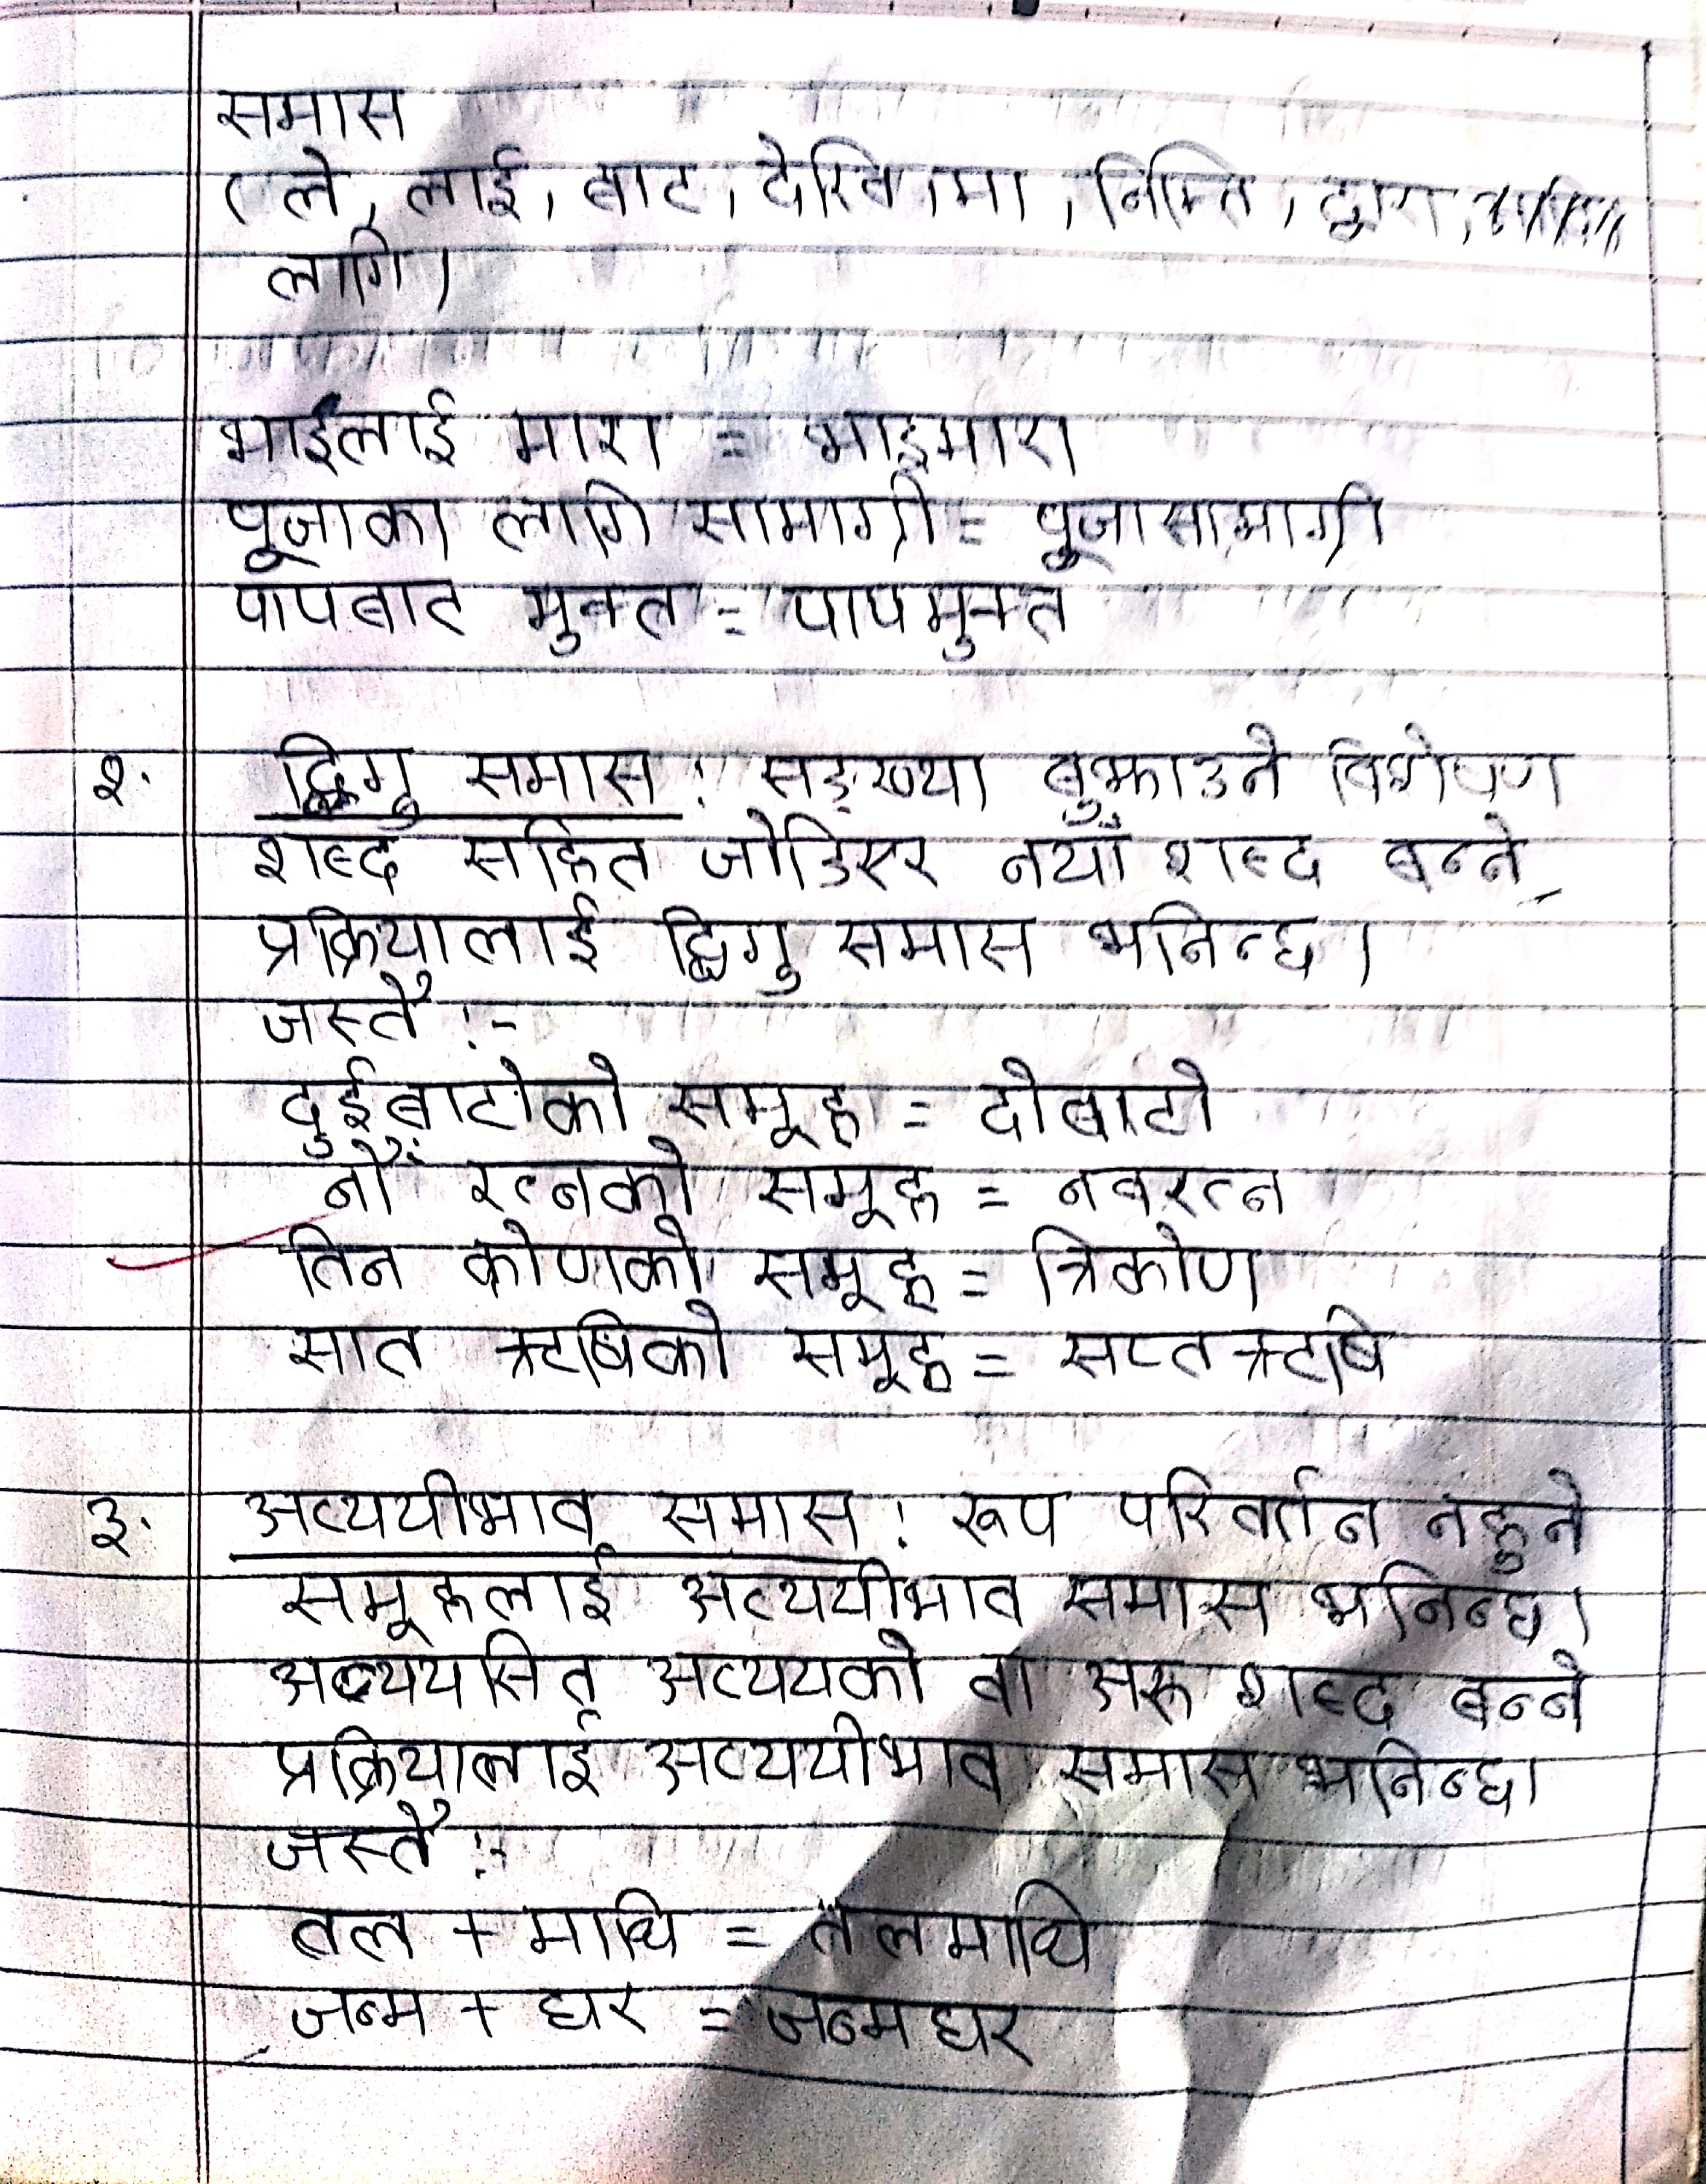 समास
( ले, लाई, बाट, देखि, मा, निम्ति, द्वारा,
लागि)
भाईलाई मारा = भाइमारा
पूजाका लागि सामाग्री = पूजासामाग्री
पापबाट मुक्त = पापमुक्त
२. द्विगु समास : सङ्ख्या बुझाउने विशेषण
शब्द सहित जोडिएर नयाँ शब्द बन्ने
प्रक्रियालाई द्विगु समास भनिन्छ।
जस्तै :-
दुईबाटोको समूह = दोबाटो
नौ रत्नको समूह = नवरत्न
तिन कोणको समूह = त्रिकोण
सात ऋषिको समूह = सप्तऋषि
३. अव्ययीभाव समास : रूप परिवर्तन नहुने
समूहलाई अव्ययीभाव समास भनिन्छ।
अव्ययसित अव्ययको वा अरू शब्द बन्ने
प्रक्रियालाई अव्ययीभाव समास भनिन्छ।
जस्तै :-
तल + माथि = तलमाथि
जन्म + घर = जन्मघर